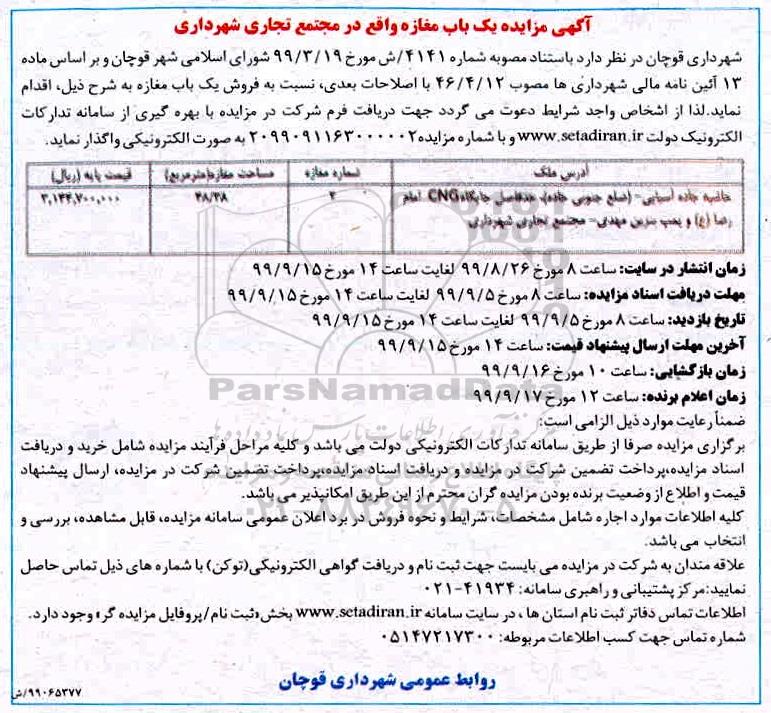 آگهی مزایده یک باب مغازه واقع در مجتمع تجاری شهرداری
شهرداری قوچان در نظر دارد باستناد مصوبه شماره ۴۱۴۱/ش مورخ ۹۹/۳/۱۹ شورای اسلامی شهر قوچان و بر اساس ماده
۱۳ آئین نامه مالی شهرداری ها مصوب ۴۶/۴/۱۲ با اصلاحات بعدی، نسبت به فروش یک باب مغازه به شرح ذیل، اقدام
نماید.لذا از اشخاص واجد شرایط دعوت می گردد جهت دریافت فرم شرکت در مزایده با بهره گیری از سامانه تدارکات
الکترونیک دولت www.setadiran.ir و با شماره مزایده ۲۰۹۹۰۹۱۱۶۳۰۰۰۰۰۲ به صورت الکترونیکی واگذار نماید.
آدرس ملک شماره مغازه مساحت مغازه(مترمربع) قیمت پایه (ریال)
حاشیه جاده آسیایی- (ضلع جنوبی جاده)، حدفاصل جایگاه CNG امام ۴ ۴۸/۳۸ ۳,۱۴۴,۷۰۰,۰۰۰
رضا (ع) و پمپ بنزین مهدی- مجتمع تجاری شهرداری
زمان انتشار در سایت: ساعت ۸ مورخ ۹۹/۸/۲۶ لغایت ساعت ۱۴ مورخ ۹۹/۹/۱۵
مهلت دریافت اسناد مزایده: ساعت ۸ مورخ ۹۹/۹/۵ لغایت ساعت ۱۴ مورخ ۹۹/۹/۱۵
تاریخ بازدید: ساعت ۸ مورخ ۹۹/۹/۵ لغایت ساعت ۱۴ مورخ ۹۹/۹/۱۵
آخرین مهلت ارسال پیشنهاد قیمت: ساعت ۱۴ مورخ ۹۹/۹/۱۵
زمان بازگشایی: ساعت ۱۰ مورخ ۹۹/۹/۱۶
ParsNamadData
زمان اعلام برنده: ساعت ۱۲ مورخ ۹۹/۹/۱۷
ضمناً رعایت موارد ذیل الزامی است:
برگزاری مزایده صرفا از طریق سامانه تدارکات الکترونیکی دولت می باشد و کلیه مراحل فرآیند مزایده شامل خرید و دریافت
اسناد مزایده،پرداخت تضمین شرکت در مزایده و دریافت اسناد مزایده،پرداخت تضمین شرکت در مزایده، ارسال پیشنهاد
قیمت و اطلاع از وضعیت برنده بودن مزایده گران محترم از این طریق امکانپذیر می باشد.
۰۲۱-۸۸۳۴۹۶۷۰-۵
کلیه اطلاعات موارد اجاره شامل مشخصات، شرایط و نحوه فروش در برد اعلان عمومی سامانه مزایده، قابل مشاهده، بررسی و
انتخاب می باشد.
علاقه مندان به شرکت در مزایده می بایست جهت ثبت نام و دریافت گواهی الکترونیکی(توکن) با شماره های ذیل تماس حاصل
نمایید:مرکز پشتیبانی و راهبری سامانه: ۴۱۹۳۴-۰۲۱
اطلاعات تماس دفاتر ثبت نام استان ها ، در سایت سامانه www.setadiran.ir بخش «ثبت نام/پروفایل مزایده گر» وجود دارد.
شماره تماس جهت کسب اطلاعات مربوطه: ۰۵۱۴۷۲۱۷۳۰۰
روابط عمومی شهرداری قوچان
۹۹۰۶۵۳۷۷/ش